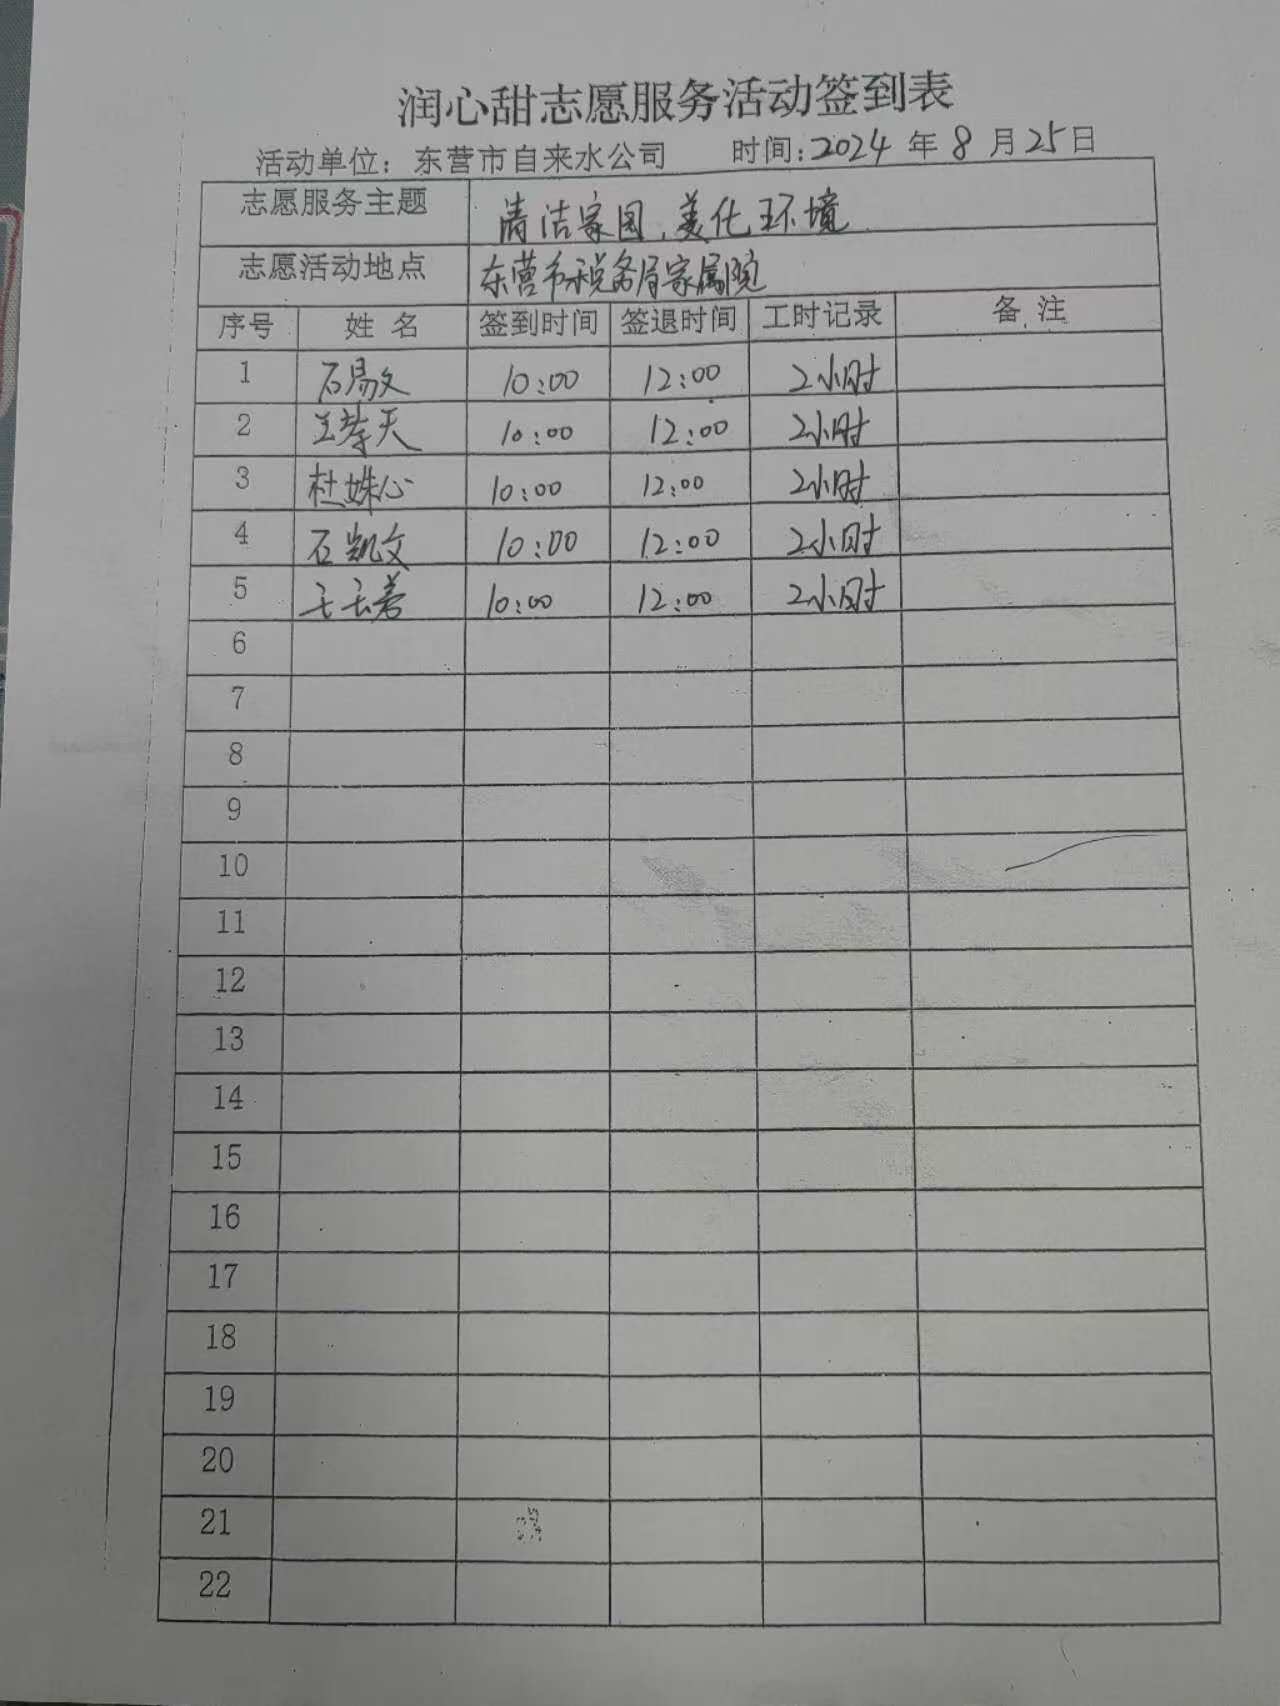 润心甜志愿服务活动签到表
活动单位：东营市自来水公司 时间：2024年8月25日
志愿服务主题 清洁家园，美化环境
志愿活动地点 东营市税务局家属院
序号 姓名 签到时间 签退时间 工时记录 备注
1 石易文 10:00 12:00 2小时
2 天 10:00 12:00 2小时
3 杜姝心 10:00 12:00 2小时
4 石凯文 10:00 12:00 2小时
5 10:00 12:00 2小时
6
7
8
9
10
11
12
13
14
15
16
17
18
19
20
21
22